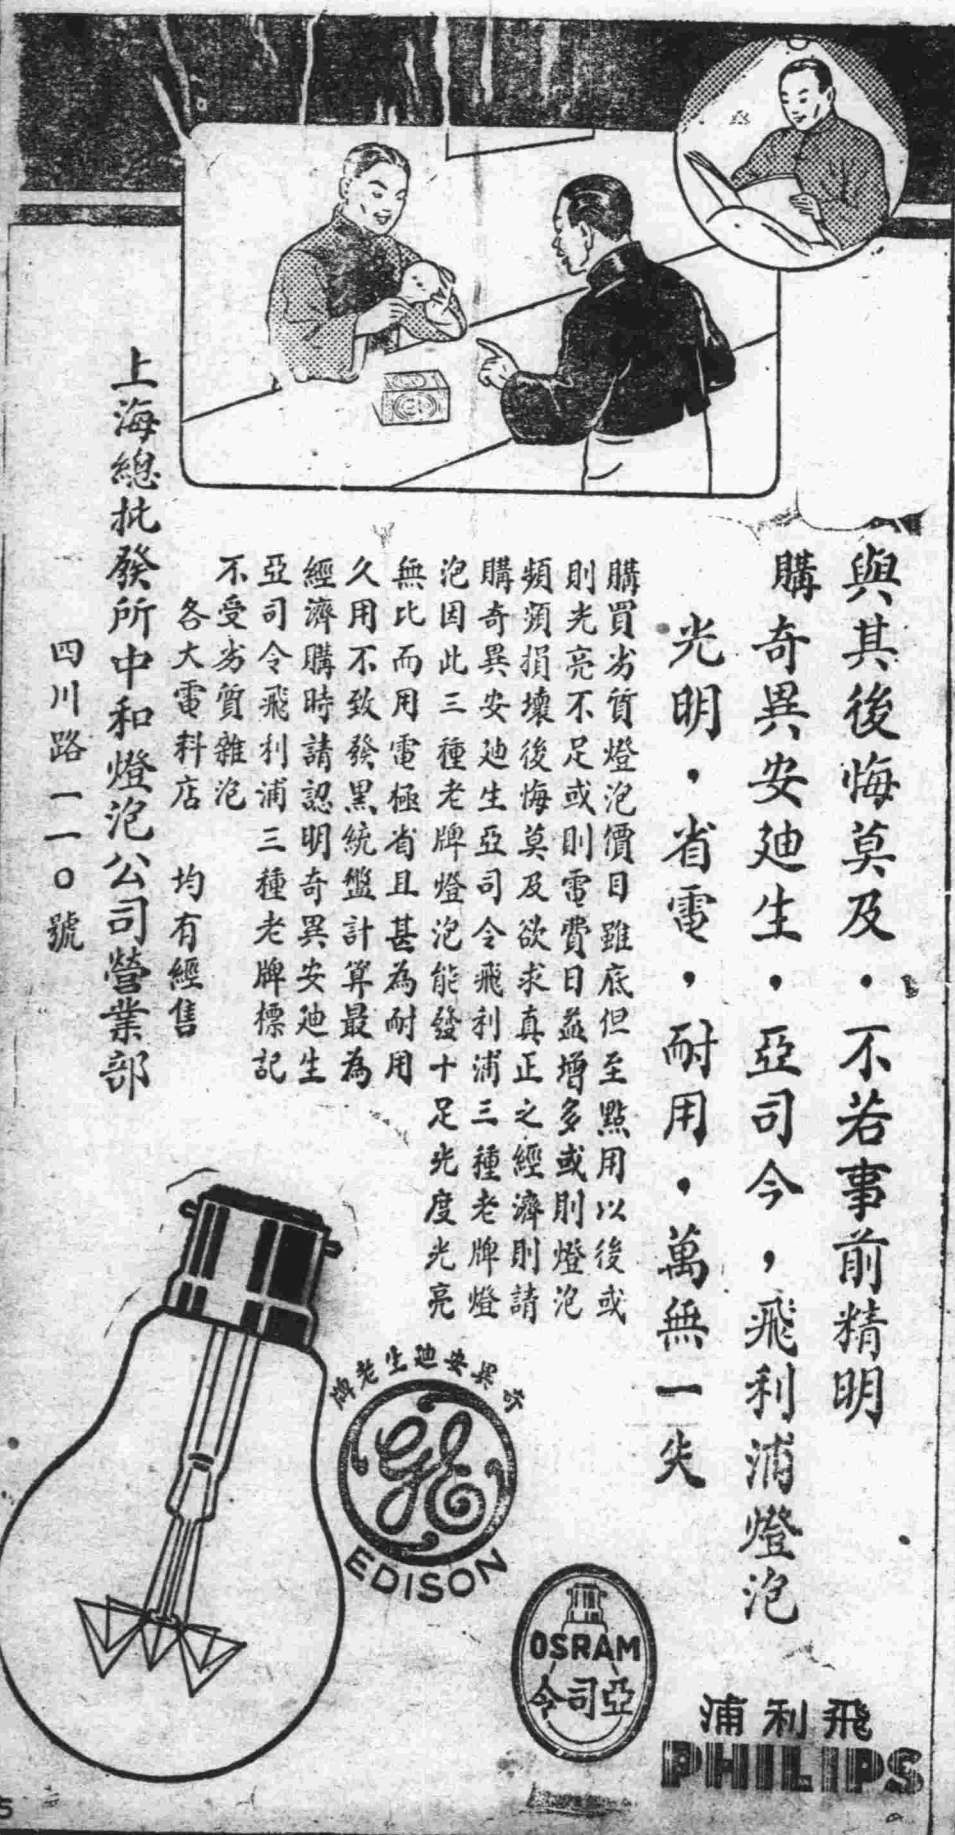 與其後悔莫及．不若事前精明
購奇異安廸生．亞司令，飛利浦燈泡
光明，省電，耐用，萬無一失
購買劣質燈泡價目雖底但至點用以後或
則光亮不足或則電費日益增多或則燈泡
頻頻損壞後悔莫及欲求真正之經濟則請
購奇異安廸生亞司令飛利浦三種老牌燈
泡因此三種老牌燈泡能發十足光度光亮
無比而用電極省且甚為耐用
久用不致發黑統盤計算最為
經濟購時請認明奇異安廸生
亞司令飛利浦三種老牌標記
不受劣質雜泡
各大電料店 均有經售
上海總批發所中和燈泡公司營業部
四川路一一〇號
奇異安廸生老牌
GE
EDISON
OSRAM
亞司令
飛利浦
PHILIPS
5